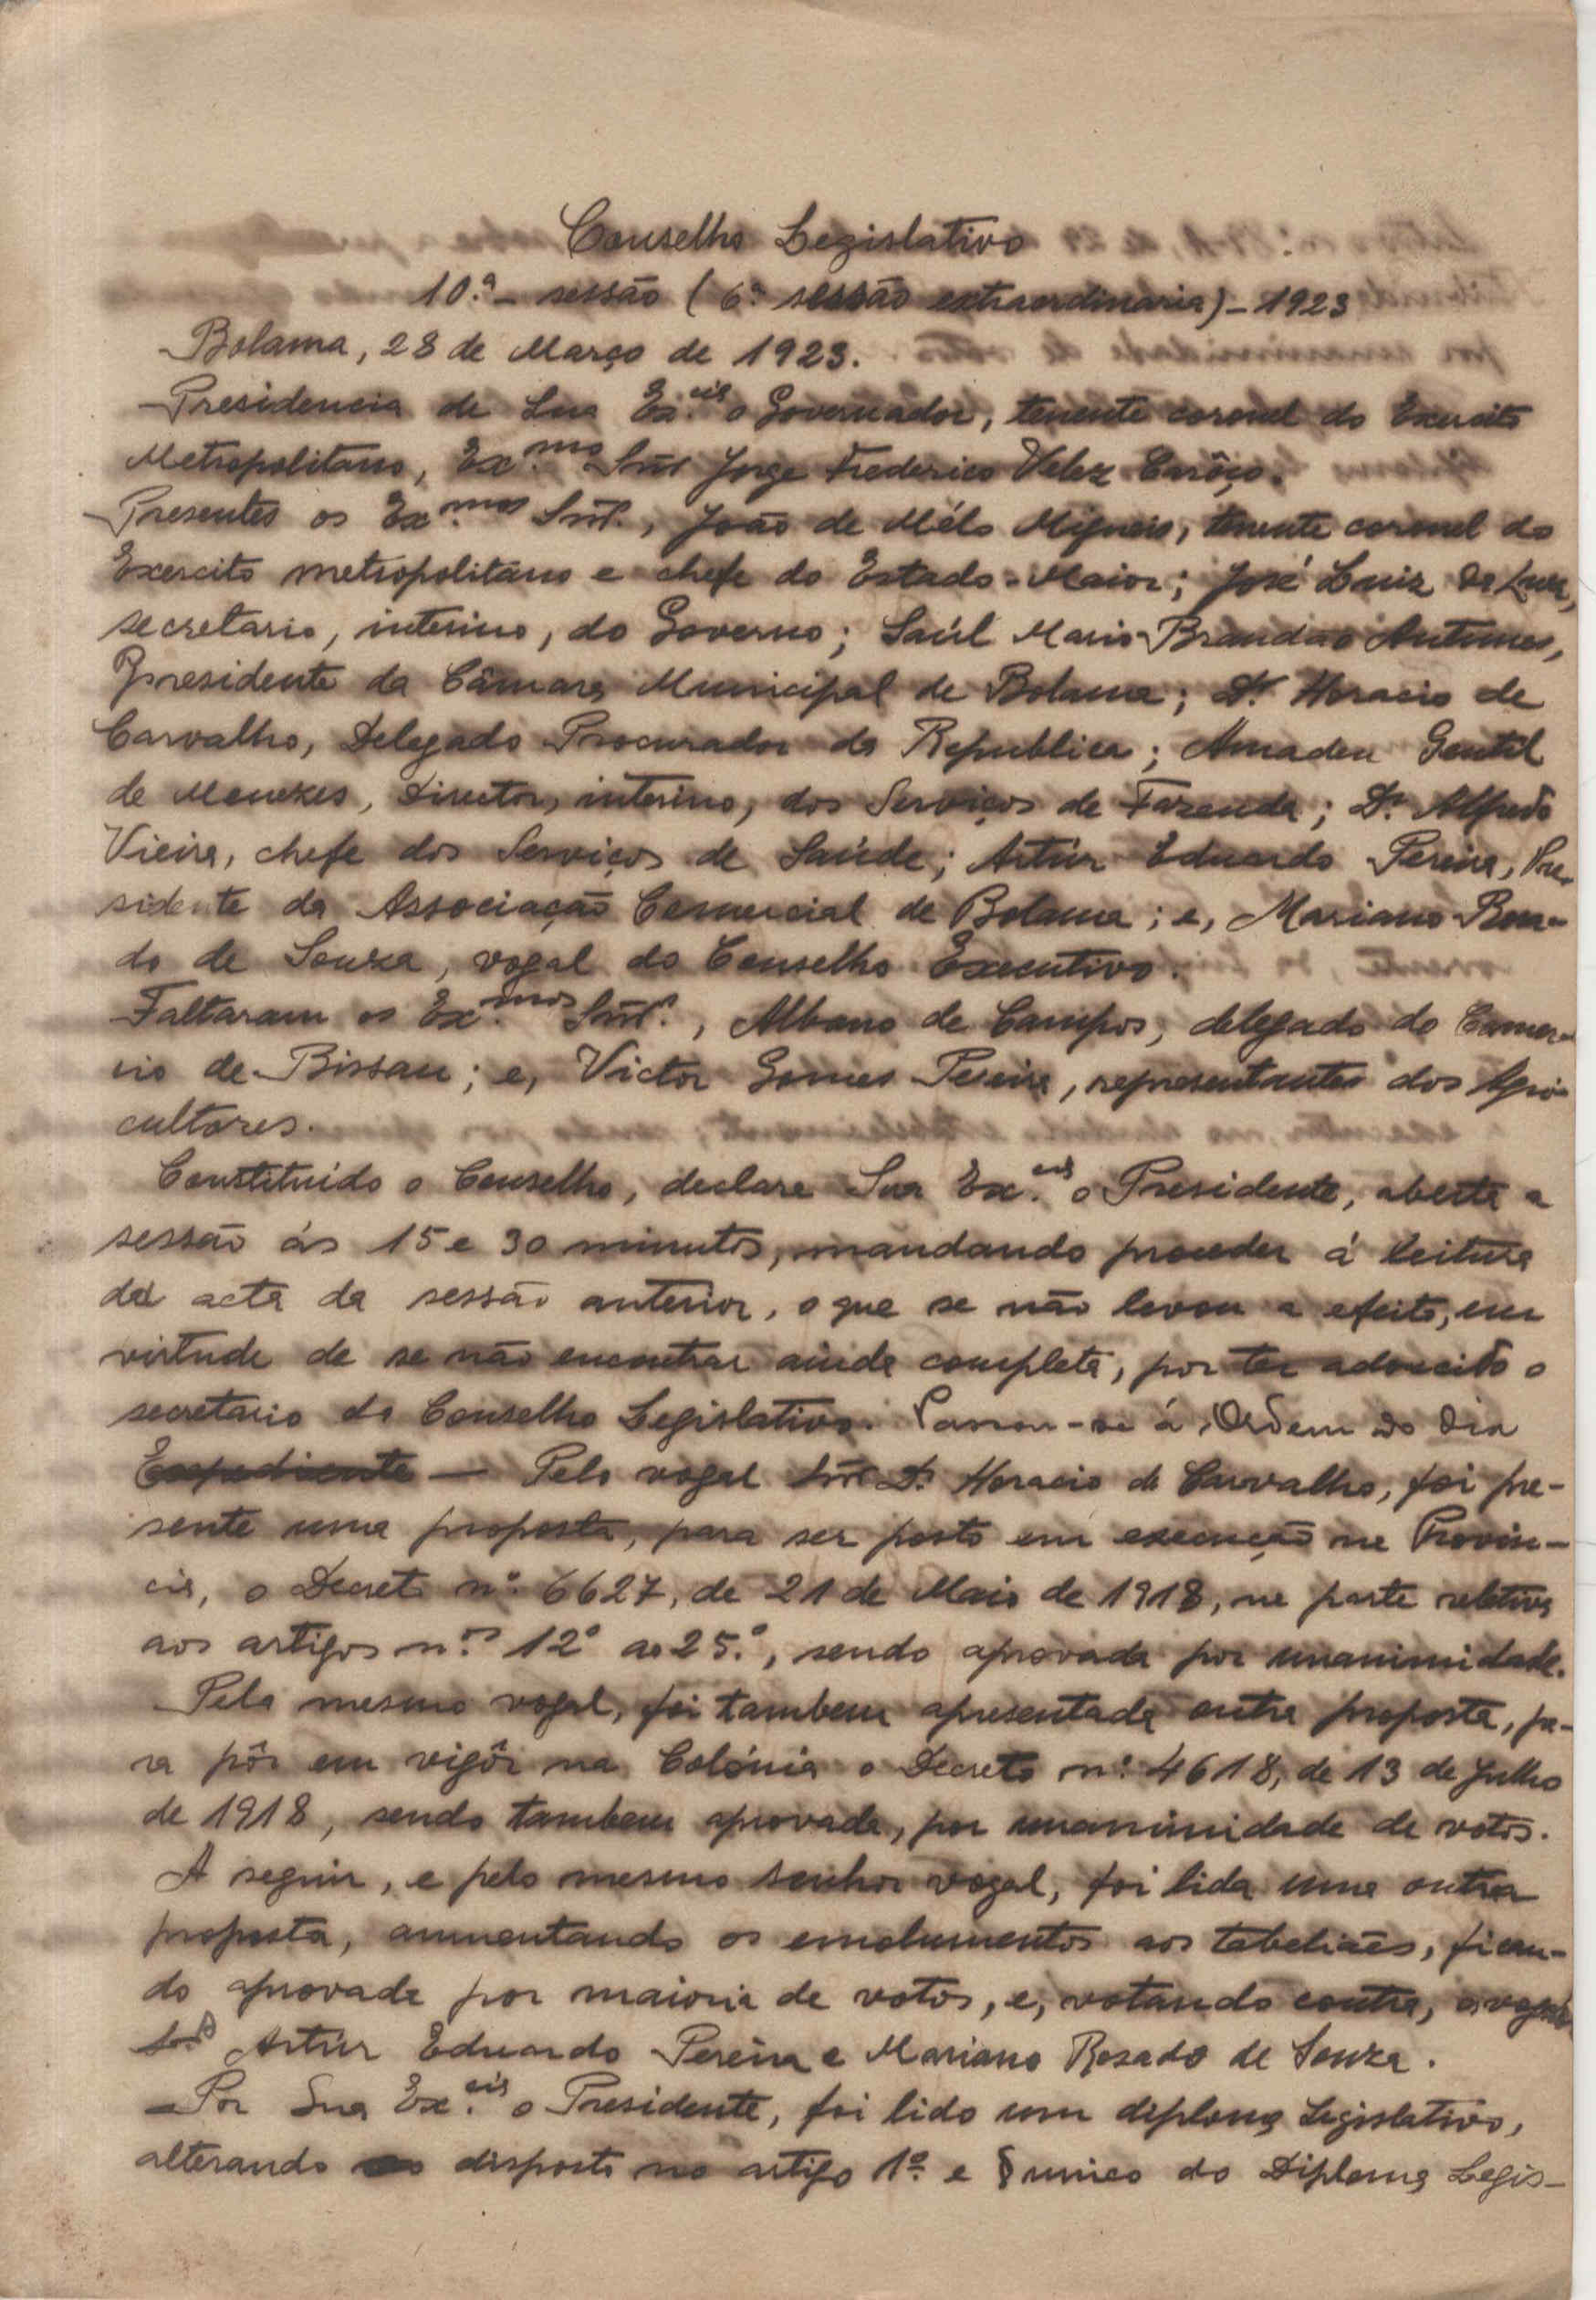 Conselho Legislativo
10.ª - sessão (6.ª sessão extraordinaria) - 1923
Bolama, 28 de Março de 1923.
Presidencia de Sua Ex.cia o Governador, tenente coronel do Exercito
Metropolitano, Ex.mo Snr Jorge Frederico Velez Carôço.
Presentes os Ex.mos Snrs., João de Mélo Migueis, tenente coronel do
Exercito metropolitano e chefe do Estado-Maior; José Luiz da Luz,
secretario, interino, do Governo; Saúl Mario Brandão Antunes,
Presidente da Câmara Municipal de Bolama; Dr. Horacio de
Carvalho, Delegado Procurador da Republica; Amadeu Gentil
de Menezes, Director, interino, dos Serviços de Fazenda; Dr. Alfredo
Vieira, chefe dos Serviços de Saúde; Artúr Eduardo Pereira, Pre-
sidente da Associação Comercial de Bolama; e, Mariano Rosa-
do de Souza, vogal do Conselho Executivo.
Faltaram os Ex.mos Snrs., Albano de Campos, delegado do Comer-
cio de Bissau; e, Victor Gomes Pereira, representantes dos Agri-
cultores.
Constituido o Conselho, declara Sua Ex.cia o Presidente, aberta a
sessão ás 15 e 30 minutos, mandando proceder á leitura
da acta da sessão anterior, o que se não levou a efeito, em
virtude de se não encontrar ainda completa, por ter adoecido o
secretario do Conselho Legislativo. Passou-se á Ordem do Dia
Expediente — Pelo vogal Snr Dr. Horacio de Carvalho, foi pre-
sente uma proposta, para ser posto em execução na Provin-
cia, o Decreto n.º 6627, de 21 de Maio de 1918, na parte relativa
aos artigos n.os 12º ao 25.º, sendo aprovada por unanimidade.
Pelo mesmo vogal, foi tambem apresentada outra proposta, pa-
ra pôr em vigôr na Colónia o Decreto n.º 4618, de 13 de Julho
de 1918, sendo tambem aprovada, por unanimidade de votos.
A seguir, e pelo mesmo senhor vogal, foi lida uma outra
proposta, aumentando os emolumentos aos tabeliães, fican-
do aprovada por maioria de votos, e, votando contra, os vogais
Artúr Eduardo Pereira e Mariano Rosado de Souza.
Por Sua Ex.cia o Presidente, foi lido um diploma Legislativo,
alterando o disposto no artigo 1º e § unico do Diploma Legis-